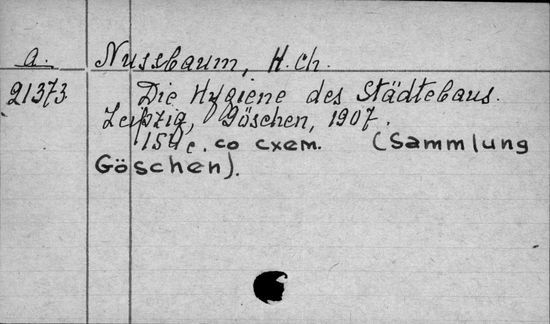 a. Nussbaum, H. ch.
21373 Die Hygiene des Städtebaus.
Leipzig, Göschen, 1907.
154 c. со схем. (Sammlung
Göschen).